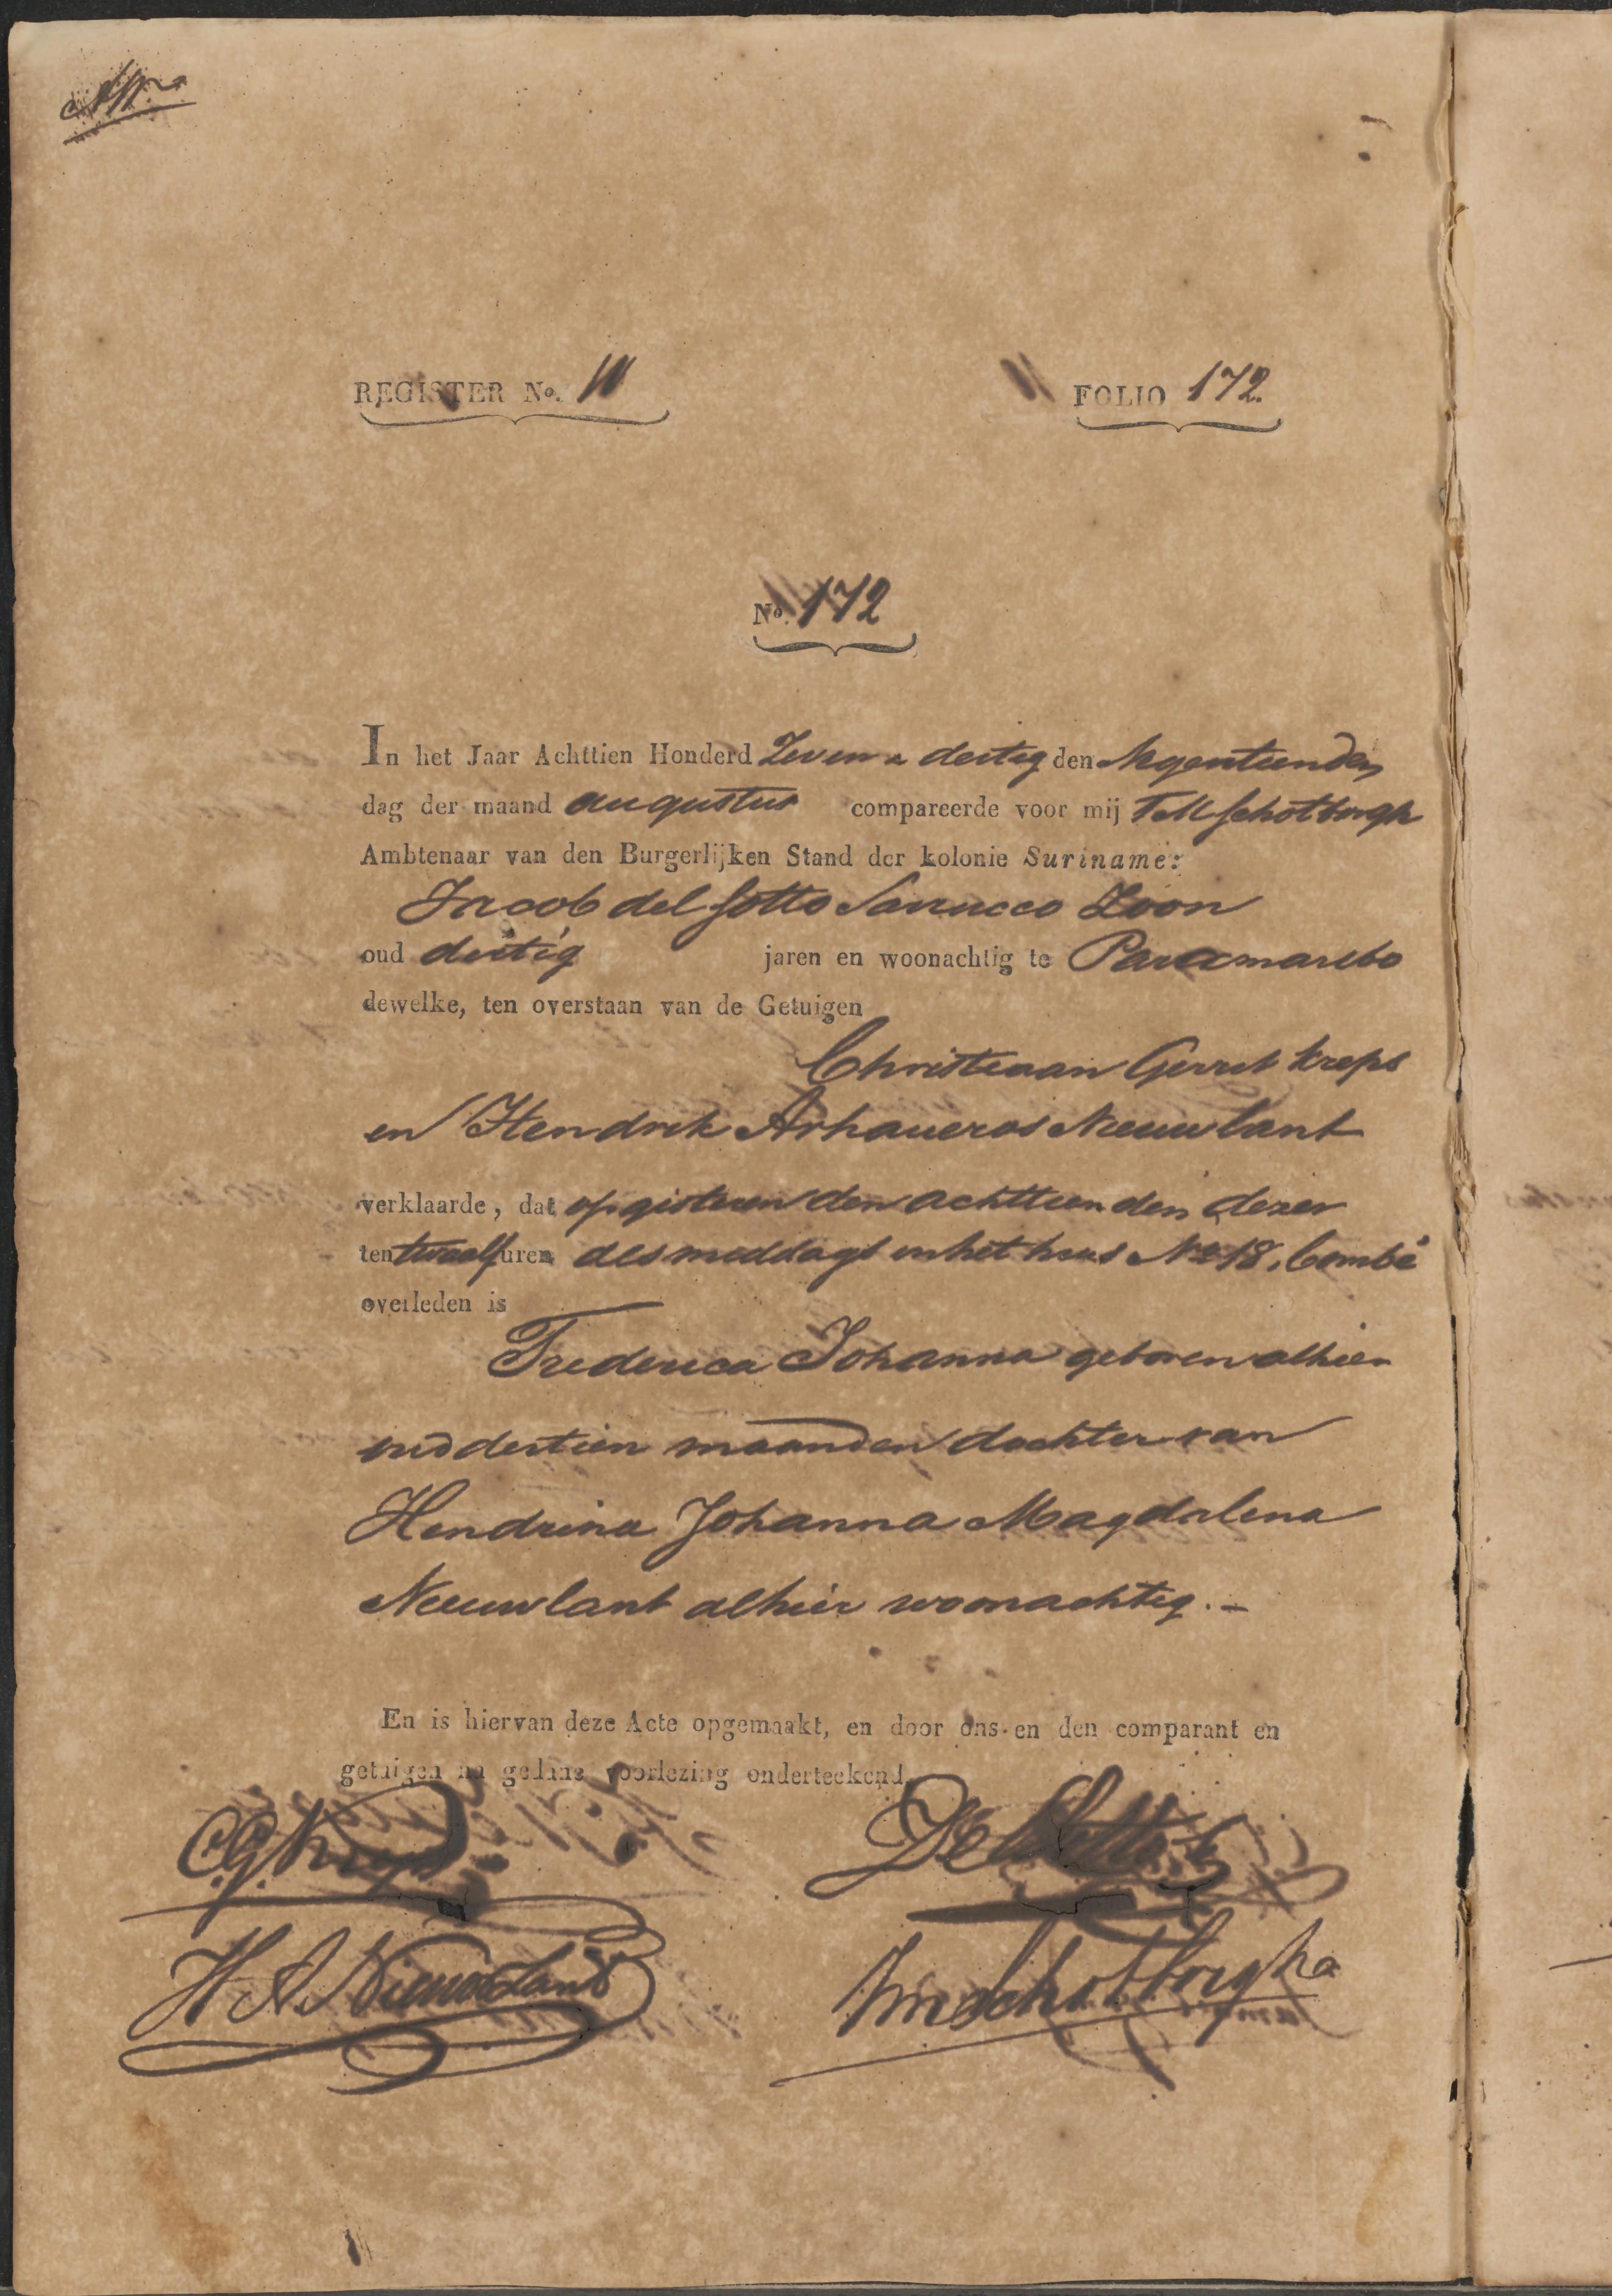 REGISTER No. 11
FOLIO 172.
No. 172
In het Jaar Achttien Honderd Zeven & dertig den Negentienden
dag der maand augustus compareerde voor mij Schotborgh
Ambtenaar van den Burgerlijken Stand der kolonie Suriname:
Jacob del Sotto Sarucco Zoon
oud dertig jaren en woonachtig te Paramaribo
dewelke, ten overstaan van de Getuigen
Christiaan Gerrit Kreps
en Hendrik Nieuwlant
verklaarde, dat op gisteren den achttienden dezer
ten twaalf uren des middags in het huis No 18, Combé
overleden is
Frederica Johanna geboren alhier
oud dertien maanden dochter van
Hendrina Johanna Magdalena
Nieuwlant alhier woonachtig. –
En is hiervan deze Acte opgemaakt, en door ons en den comparant en
getuigen na gedane voorlezing onderteekend.
C G Kreps
H A Nieuwlant
Schotborgh